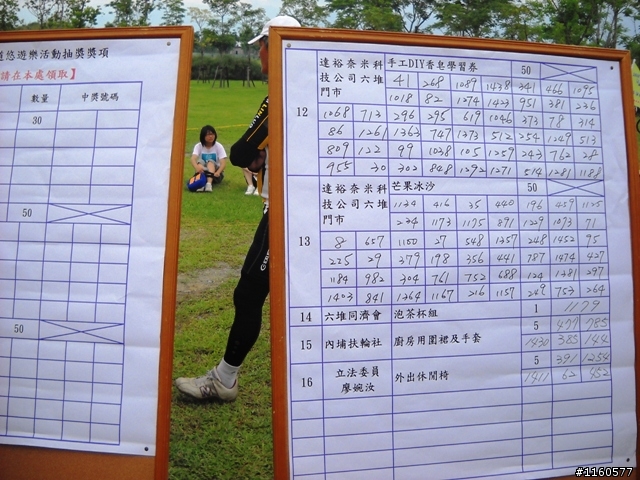 道悠遊樂活動抽獎獎項
請在本處領取】
數量 中獎號碼
30
50
50
達裕奈米科技公司六堆門市 手工DIY香皂學習券 50
12
41 268 1089 1438 341 466 1095
1018 82 1274 1423 951 381 236
1068 713 296 295 619 1046 373 78 314
86 1261 1363 747 1273 512 254 1249 513
809 122 99 1038 105 1259 243 762 28
955 30 302 848 1292 1271 514 1281 1188
達裕奈米科技公司六堆門市 芒果冰沙 50
13
1134 416 35 440 196 459 1125
234 1173 1175 891 1229 1073 71
8 657 1100 27 548 1357 248 1452 95
225 29 379 198 356 441 787 1474 427
1184 982 304 761 752 688 124 1381 297
1403 841 1264 1167 216 1157 249 753 264
14 六堆同濟會 泡茶杯組 1 1179
15 內埔扶輪社 廚房用圍裙及手套 5 471 785
1430 385 144
16 立法委員廖婉汝 外出休閒椅 5 391 1254
1411 62 452
#1160577